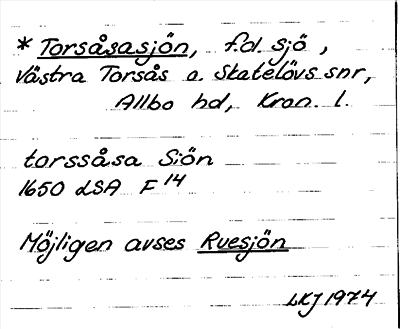 * Torsåsasjön, f.d. sjö,
Västra Torsås o. Skatelövs snr,
Allbo hd, Kron. l.
torssåsa Siön
1650 LSA F 14
Möjligen avses Ruesjön
LKJ 1974